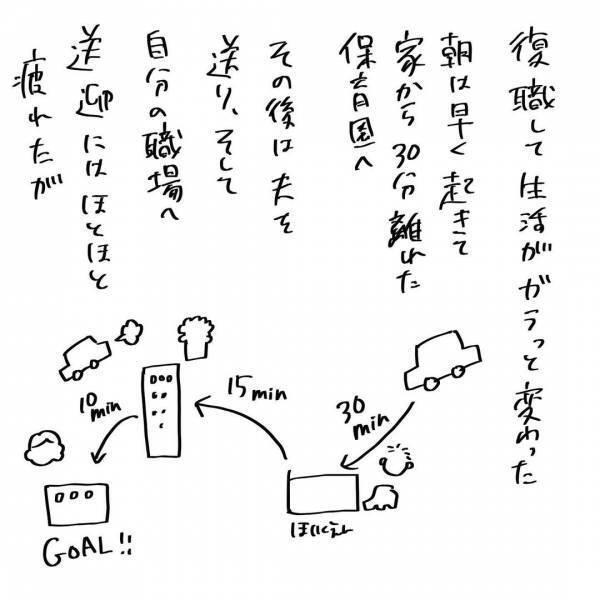 復職して生活がガラっと変わった
朝は早く起きて
家から30分離れた
保育園へ
その後は夫を
送り、そして
自分の職場へ
送迎にはほとほと
疲れたが
30 min
ほいくえん
15 min
10 min
GOAL!!